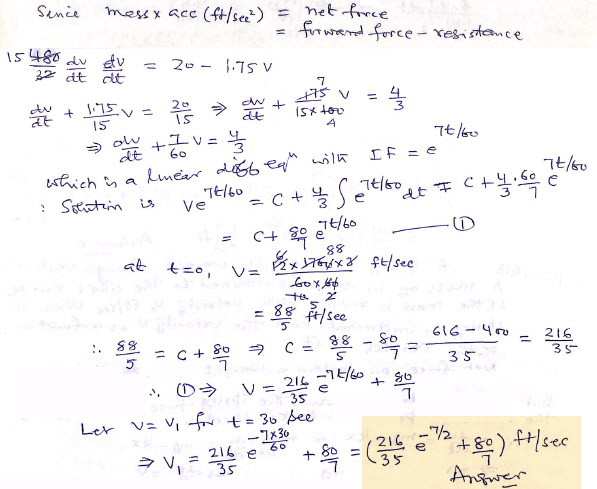 Since mass x acc (ft/sec²) = net force
= forward force - resistance
15 480/32 dv/dt dv/dt = 20 - 1.75 V
dv/dt + 1.75/15 V = 20/15 ⇒ dv/dt + 7 175/15x100 4 V = 4/3
⇒ dv/dt + 7/60 V = 4/3
which is a linear diff eqⁿ with IF = e^7t/60
: Solution is Ve^7t/60 = C + 4/3 ∫ e^7t/60 dt = C + 4/3 . 60/7 e^7t/60
= C + 80/7 e^7t/60 —— ①
at t=0, V = 12 x 1760 x 3 / 60 x 60 ft/sec
= 88/5 ft/sec
∴ 88/5 = C + 80/7 ⇒ C = 88/5 - 80/7 = 616 - 400/35 = 216/35
∴ ① ⇒ V = 216/35 e^-7t/60 + 80/7
Let V = V₁ for t = 30 sec
⇒ V₁ = 216/35 e^-7x30/60 + 80/7 = (216/35 e^-7/2 + 80/7) ft/sec
Answer